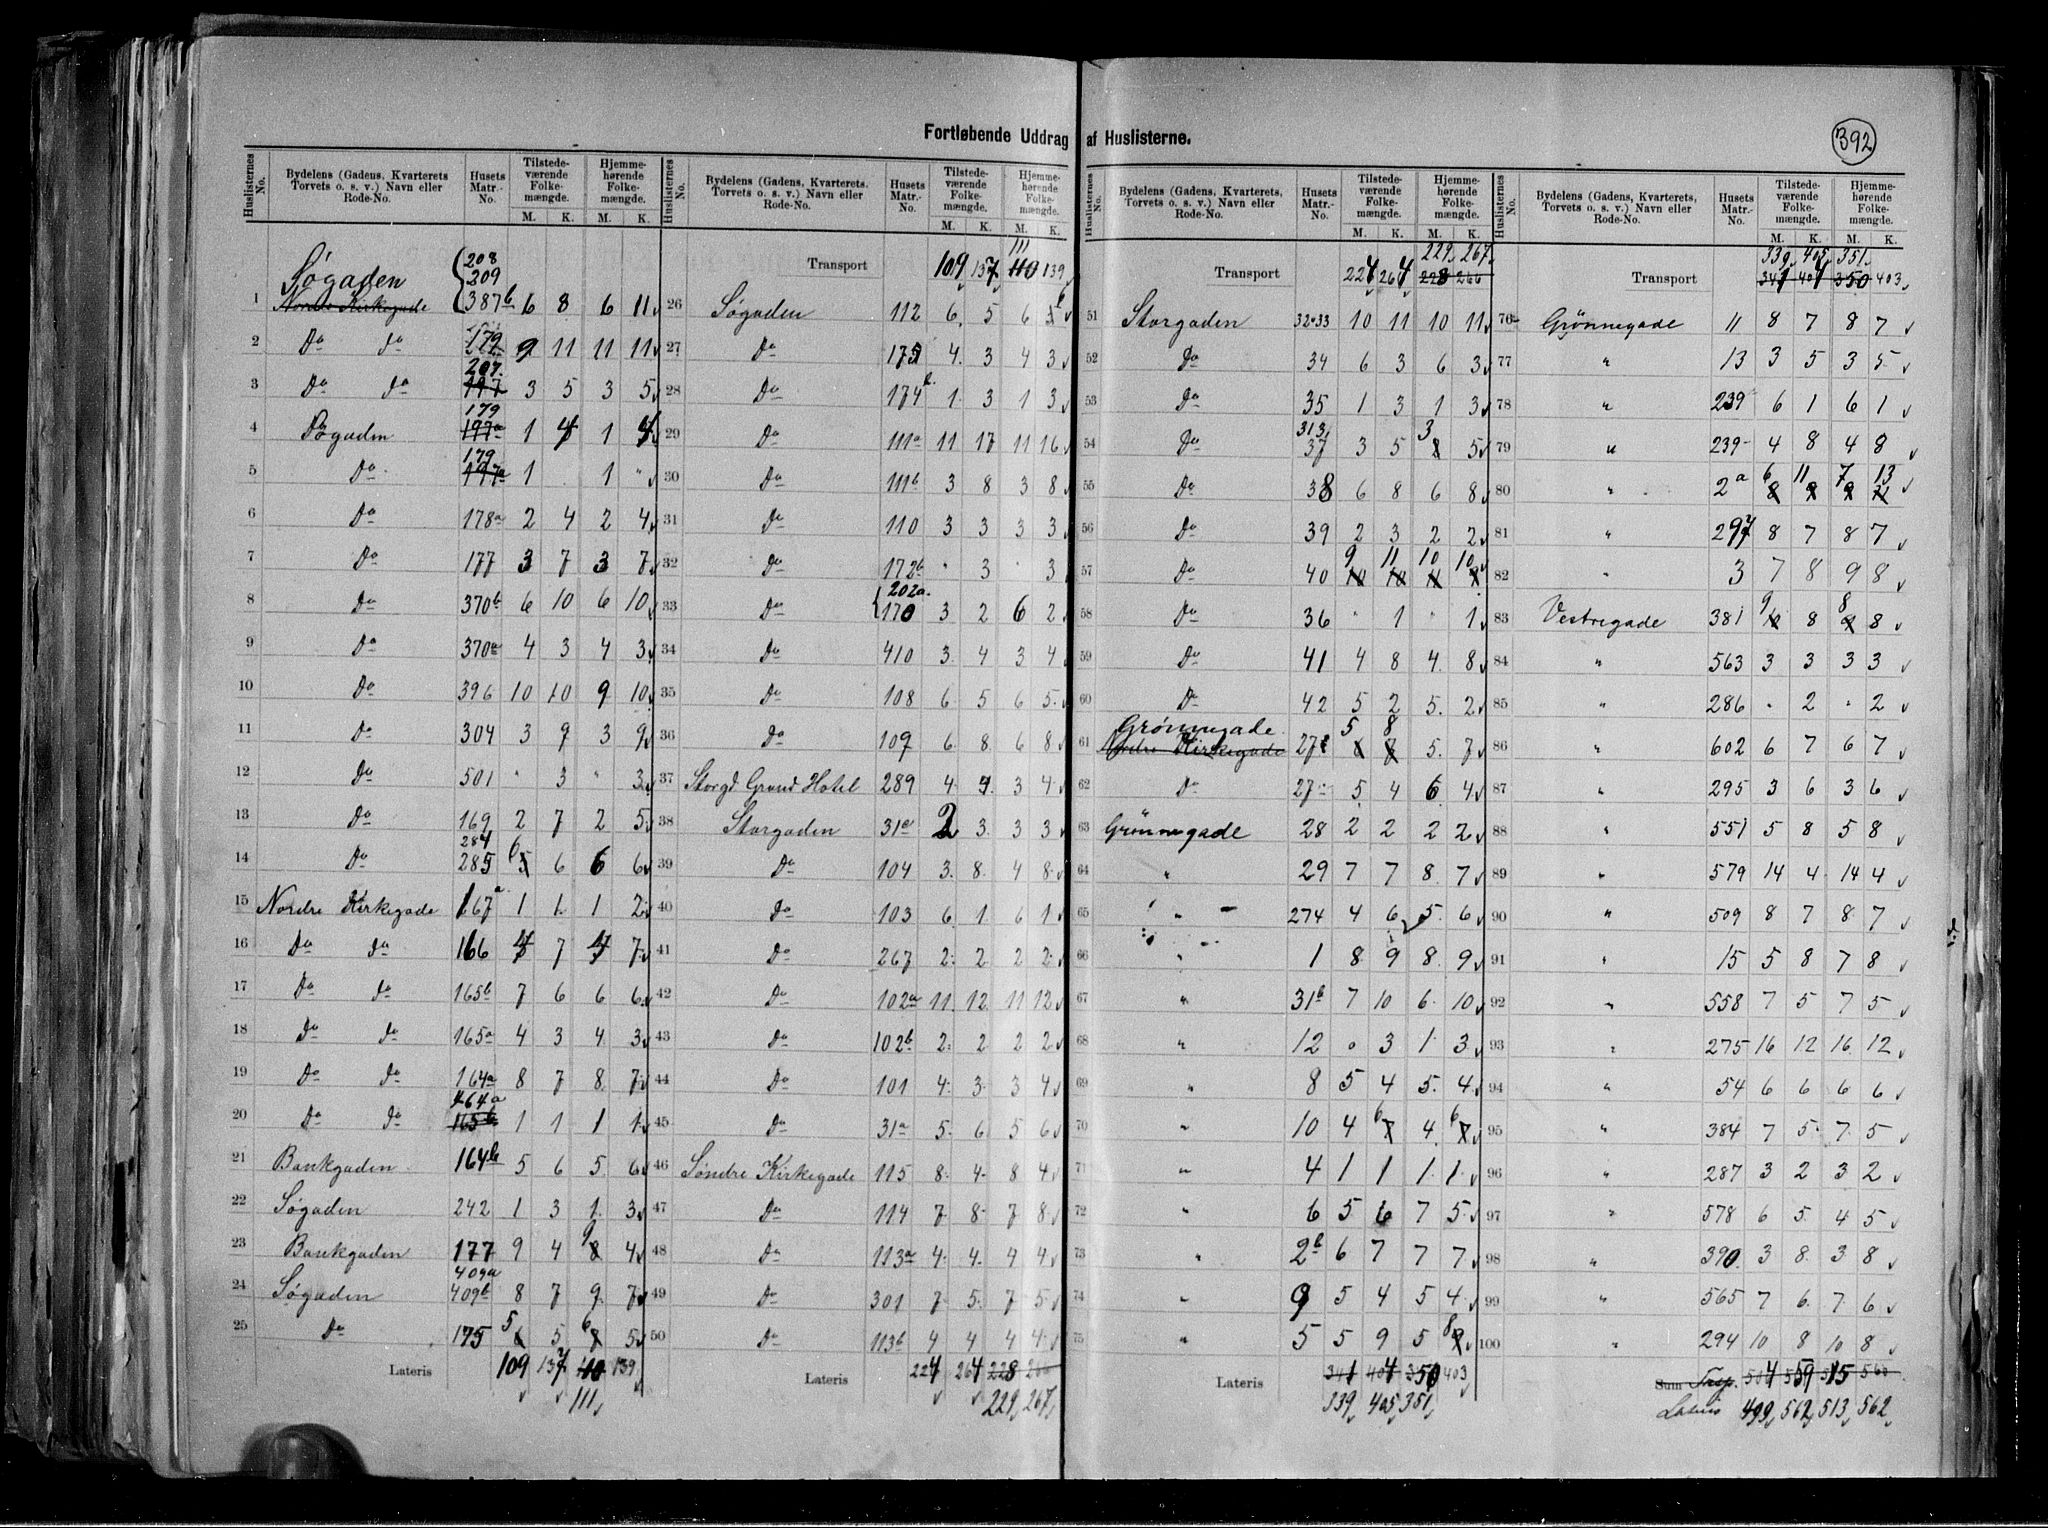 Fortløbende Uddrag af Huslisterne.
392
Huslisternes No. | Bydelens (Gadens, Kvarterets, Torvets o. s. v.) Navn eller Rode-No. | Husets Matr.-No. | Tilstedeværende Folkemængde. M. K. | Hjemmehørende Folkemængde. M. K.
1 Søgaden Nordre Kirkegade 208 209 387b 6 8 6 11
2 Do do 179 9 11 11 11
3 Do do 207. 197 3 5 3 5
4 Søgaden 179 197a 1 4 1 4
5 Do 179 197a 1 1 "
6 Do 178a 2 4 2 4
7 Do 177 3 7 3 7
8 Do 370b 6 10 6 10
9 Do 370a 4 3 4 3
10 Do 396 10 10 9 10
11 Do 304 3 9 3 9
12 Do 501 " 3 " 3
13 Do 169 2 7 2 5
14 Do 284 285 6 5 6 6 6
15 Nordre Kirkegade 167a 1 1 1 2
16 Do do 166 4 7 4 7
17 Do do 165b 7 6 6 6
18 Do do 165a 4 3 4 3
19 Do do 164a 8 7 8 7
20 Do do 464a 165b 1 1 1 1
21 Bankgaden 164b 5 6 5 6
22 Søgaden 242 1 3 1 3
23 Bankgaden 177 9 4 9 8 4
24 Søgaden 409a 409b 8 7 9 7
25 Do 175 5 6 5 6 8 5
Lateris 109 137 110 139
111
Transport 109 137 111 110 139
26 Søgaden 112 6 5 6 6
27 Do 175 4 3 4 3
28 Do 174b. 1 3 1 3
29 Do 111a 11 17 11 16
30 Do 111b 3 8 3 8
31 Do 110 3 3 3 3
32 Do 172b " 3 3
33 Do 202a. 170 3 2 6 2
34 Do 410 3 4 3 4
35 Do 108 6 5 6 5
36 Do 107 6 8 6 8
37 Storgd Grand Hotel 289 4 9 3 4
38 Storgaden 31a 2 3 3 3
39 Do 104 3 8 4 8
40 Do 103 6 1 6 1
41 Do 267 2 2 2 2
42 Do 102a 11 12 11 12
43 Do 102b 2 2 2 2
44 Do 101 4 3 3 4
45 Do 31a 5 6 5 6
46 Søndre Kirkegade 115 8 4 8 4
47 Do 114 7 8 7 8
48 Do 113a 4 4 4 4
49 Do 301 7 5 7 5
50 Do 113b 4 4 4 4
Lateris 224 264 228 266
229 267
Transport 224 264 229 267 228 266
51 Storgaden 32&33 10 11 10 11
52 Do 34 6 3 6 3
53 Do 35 1 3 1 3
54 Do 313, 37 3 5 3 5
55 Do 38 6 8 6 8
56 Do 39 2 3 2 2
57 Do 40 9 11 10 10
58 Do 36 " 1 " 1
59 Do 41 4 8 4 8
60 Do 42 5 2 5 2
61 Grønnegade Nordre Kirkegade 27 5 8 5 7
62 Do 27 5 4 6 4
63 Grønnegade 28 2 2 2 2
64 " 29 7 7 8 7
65 " 274 4 6 5 6
66 " 1 8 9 8 9
67 " 31b 7 10 6 10
68 " 12 " 3 1 3
69 " 8 5 4 5 4
70 " 10 4 6 4 6
71 " 4 1 1 1 1
72 " 6 5 6 7 5
73 " 2b 6 7 7 7
74 " 9 5 4 5 4
75 " 5 5 9 5 8 9
Lateris 341 404 350 403
339 405 351
Transport 339 405 351 341 404 350 403
76 Grønnegade 11 8 7 8 7
77 " 13 3 5 3 5
78 " 239 6 1 6 1
79 " 239 4 8 4 8
80 " 2a 6 8 11 9 7 9 13 11
81 " 297 8 7 8 7
82 " 3 7 8 9 8
83 Vestregade 381 9 8 8 8
84 " 563 3 3 3 3
85 " 286 " 2 " 2
86 " 602 6 7 6 7
87 " 295 3 6 3 6
88 " 551 5 8 5 8
89 " 579 14 4 14 4
90 " 509 8 7 8 7
91 " 15 5 8 7 8
92 " 558 7 5 7 5
93 " 275 16 12 16 12
94 " 54 6 6 6 6
95 " 384 7 5 7 5
96 " 287 3 2 3 2
97 " 578 6 5 4 5
98 " 390 3 8 3 8
99 " 565 7 6 7 6
100 " 294 10 8 10 8
Sum Trsp. 504 559 515 560
Lateris 499 562 513 562